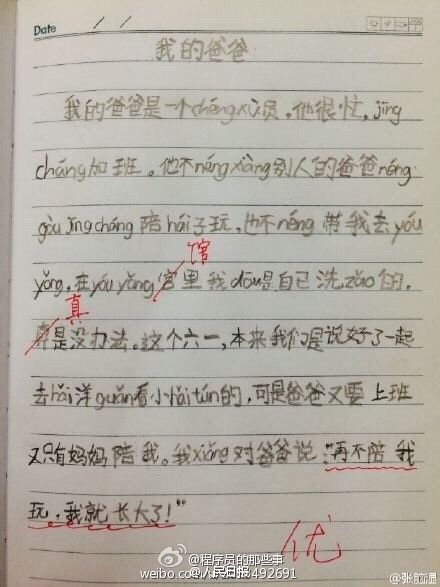 Date / /
我的爸爸
我的爸爸是一个chéng xù员，他很忙，jīng
cháng加班。他不néng xiàng别人的爸爸néng
gòu jīng cháng 陪hái子玩，也不néng 带我去yóu
yǒng，在yóu yǒng 宫里我dōu是自己洗zǎo的，
馆
真
是没办法。这个六一，本来我们是说好了一起
去hǎi洋guǎn看小hǎi tún的，可是爸爸又要上班
又只有妈妈陪我。我xiǎng对爸爸说："再不陪我
玩，我就长大了！"
优
@程序员的那些事
@人民日报
weibo.com/
492691